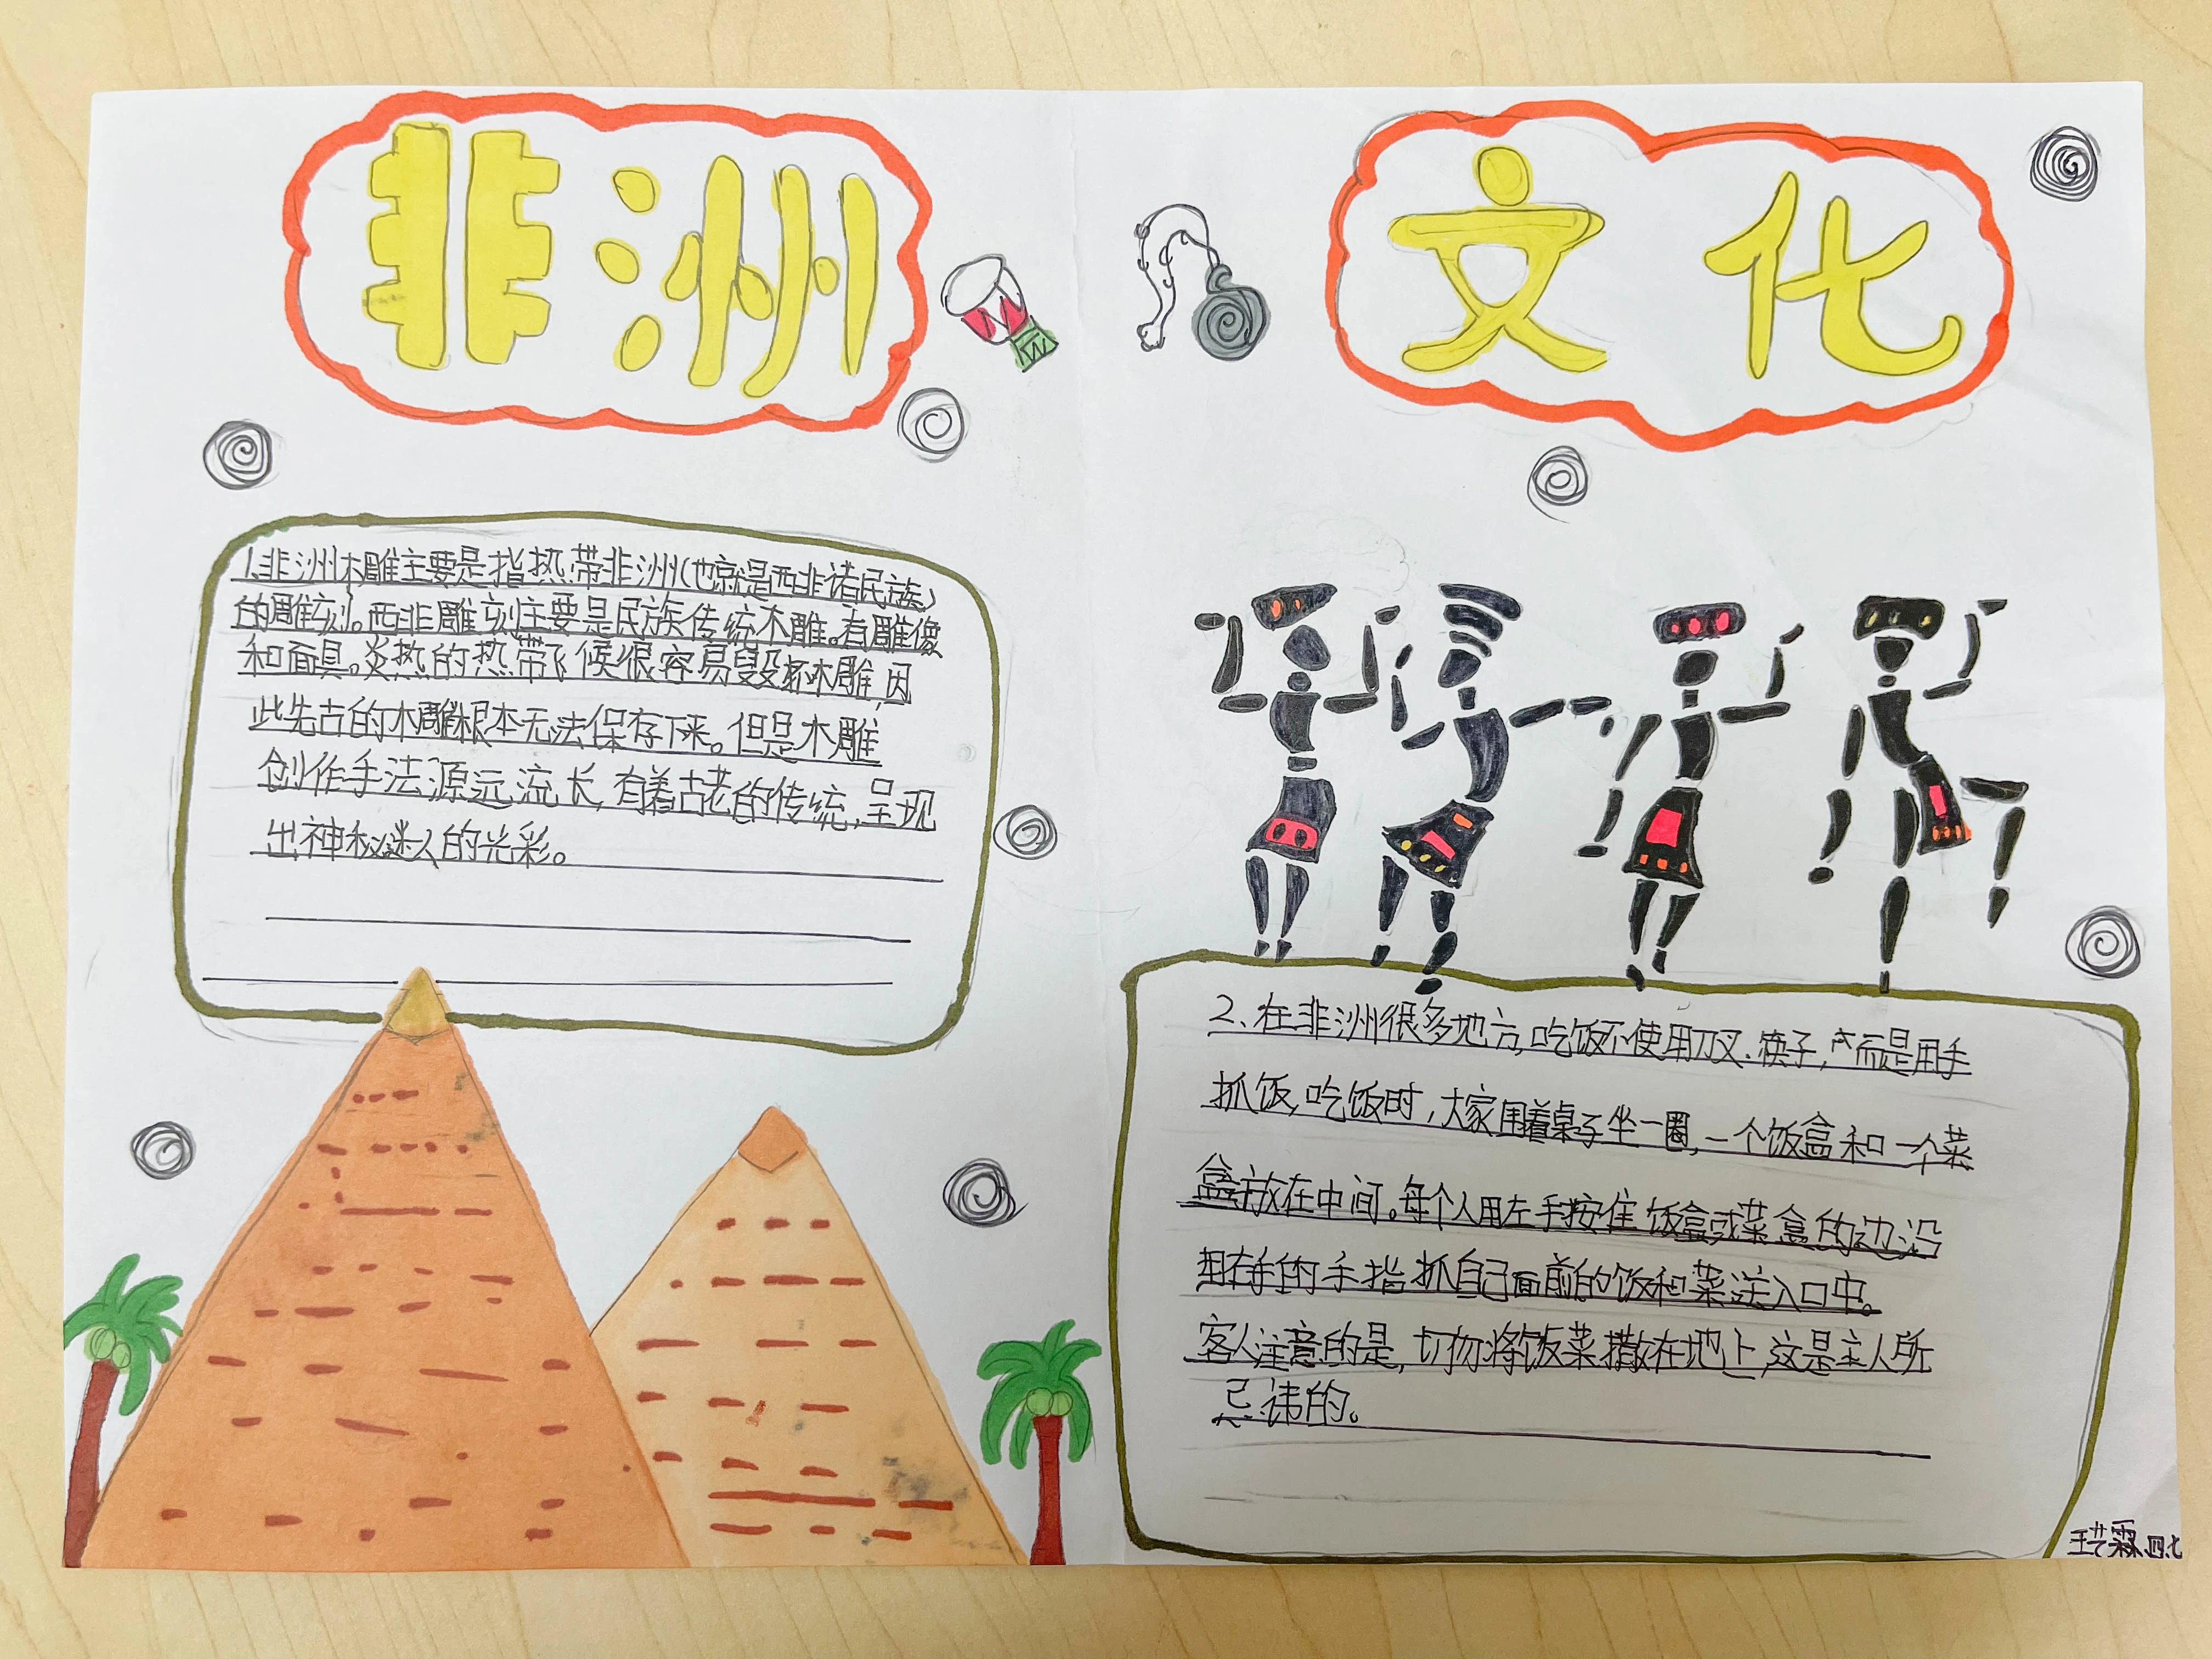 非洲
文化
1.非洲木雕主要是指热带非洲(也就是西非诸民族)
的雕刻。西非雕刻主要是民族传统木雕。有雕像
和面具。炎热的热带气候很容易毁坏木雕,因
此先古的木雕根本无法保存下来。但是木雕
创作手法源远流长,有着古老的传统,呈现
出神秘迷人的光彩。
2、在非洲很多地方,吃饭不使用刀叉、筷子,而是用手
抓饭,吃饭时,大家围着桌子坐一圈,一个饭盒和一个菜
盒放在中间。每个人用左手按住饭盒或菜盒的边沿
用右手的手指抓自己面前的饭和菜送入口中。
客人注意的是,切勿将饭菜撒在地上,这是主人所
忌讳的。
王艺霖 四.七